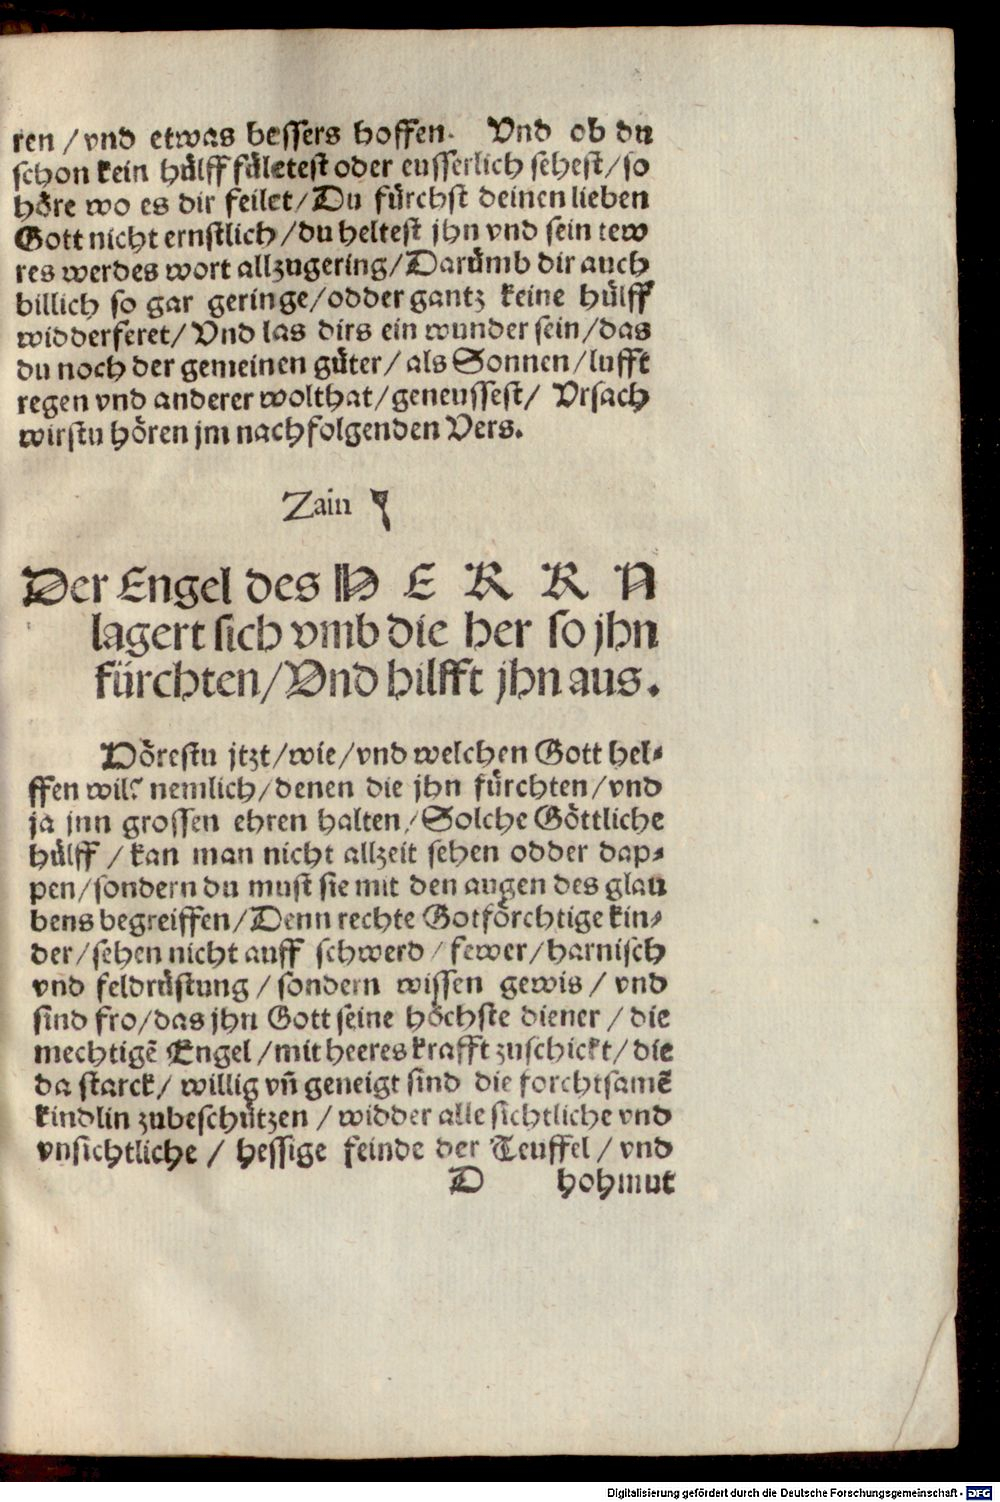 ren / vnd etwas bessers hoffen. Vnd ob du
schon kein hülff fületest oder eusserlich sehest / so
höre wo es dir feilet / Du fürchst deinen lieben
Gott nicht ernstlich / du heltest jhn vnd sein tew
res werdes wort allzugering / Darümb dir auch
billich so gar geringe / odder gantz keine hülff
widderferet / Vnd las dirs ein wunder sein / das
du noch der gemeinen güter / als Sonnen / lufft
regen vnd anderer wolthat / geneussest / Vrsach
wirstu hören jm nachfolgenden Vers.
Zain ז
Der Engel des H E R R N
lagert sich vmb die her so jhn
fürchten / Vnd hilfft jhn aus.
Hörestu jtzt / wie / vnd welchen Gott hel⸗
ffen wil? nemlich / denen die jhn fürchten / vnd
ja jnn grossen ehren halten / Solche Göttliche
hülff / kan man nicht allzeit sehen odder dap⸗
pen / sondern du must sie mit den augen des glau
bens begreiffen / Denn rechte Gotförchtige kin⸗
der / sehen nicht auff schwerd / fewer / harnisch
vnd feldrüstung / sondern wissen gewis / vnd
sind fro / das jhn Gott seine höchste diener / die
mechtigē Engel / mit heeres krafft zuschickt / die
da starck / willig vñ geneigt sind die forchtsamē
kindlin zubeschützen / widder alle sichtliche vnd
vnsichtliche / hessige feinde der Teuffel / vnd
D hohmut
Digitalisierung gefördert durch die Deutsche Forschungsgemeinschaft - DFG